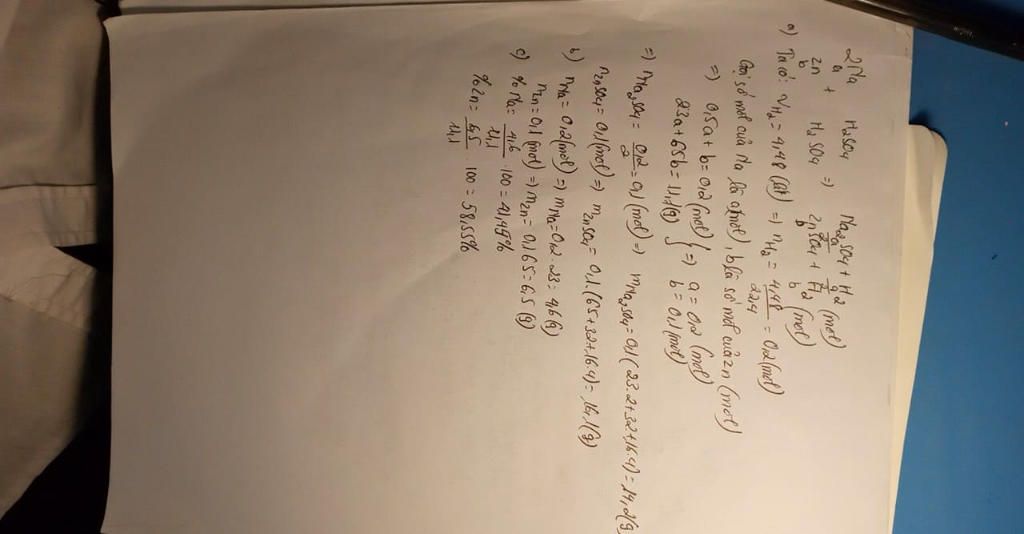 2Na + H2SO4 => Na2SO4 + H2
a a/2 a/2 (mol)
Zn + H2SO4 => ZnSO4 + H2
b b b (mol)
a) Ta có: VH2 = 4,48 (lít) => nH2 = 4,48/22,4 = 0,2 (mol)
Gọi số mol của Na là a(mol), b là số mol của Zn (mol)
=> 0,5a + b = 0,2 (mol) } => a = 0,2 (mol)
23a + 65b = 11,1 (g) b = 0,1 (mol)
=> nNa2SO4 = 0,2/2 = 0,1 (mol) => mNa2SO4 = 0,1 (23.2+32+16.4) = 14,2 (g)
nZnSO4 = 0,1 (mol) => mZnSO4 = 0,1.(65+32+16.4) = 16,1 (g)
b) nNa = 0,2 (mol) => mNa = 0,2.23 = 4,6 (g)
nZn = 0,1 (mol) => mZn = 0,1.65 = 6,5 (g)
c) % Na = 4,6/11,1 . 100 = 41,44%
% Zn = 6,5/11,1 . 100 = 58,55%